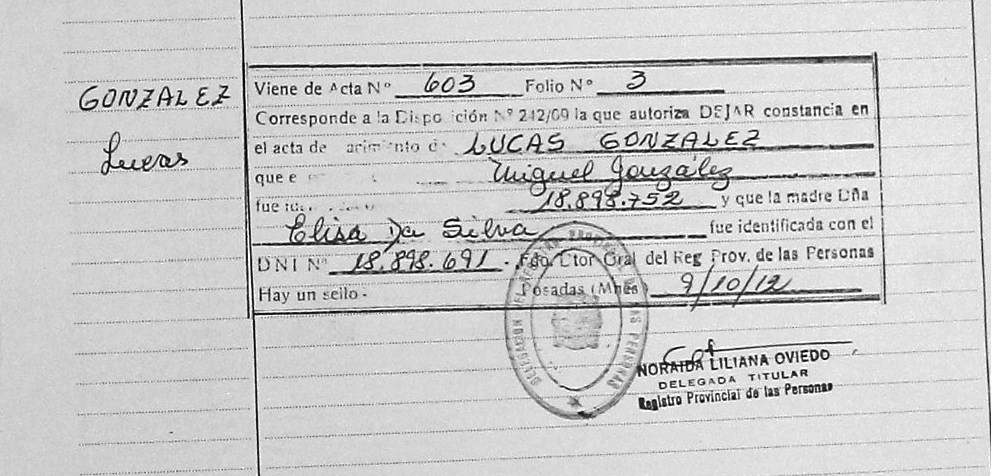 GONZALEZ
Lucas
Viene de Acta Nº 603 Folio Nº 3
Corresponde a la Dispo ición Nº 242/09 la que autoriza DEJAR constancia en
el acta de LUCAS GONZALEZ
que e Miguel González
fue 18.898.752 y que la madre Dña
Elisa Da Silva fue identificada con el
DNI Nº 18.898.691 - Fdo. Ctor Gral del Reg Prov. de las Personas
Hay un sello - Posadas (Mnes) 9/10/12
NORAIDA LILIANA OVIEDO
DELEGADA TITULAR
Registro Provincial de las Personas